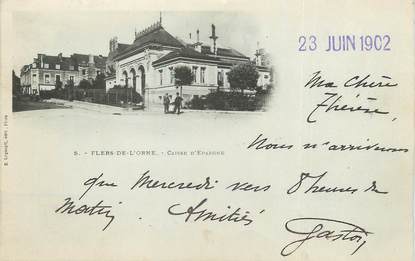 23 JUIN 1902
Ma Chère
Thérèse,
5. - FLERS-DE-L'ORNE. - CAISSE D'EPARGNE
Nous n'arriverons
que Mercredi vers 8 heures du
Matin, Amitiés
Gaston